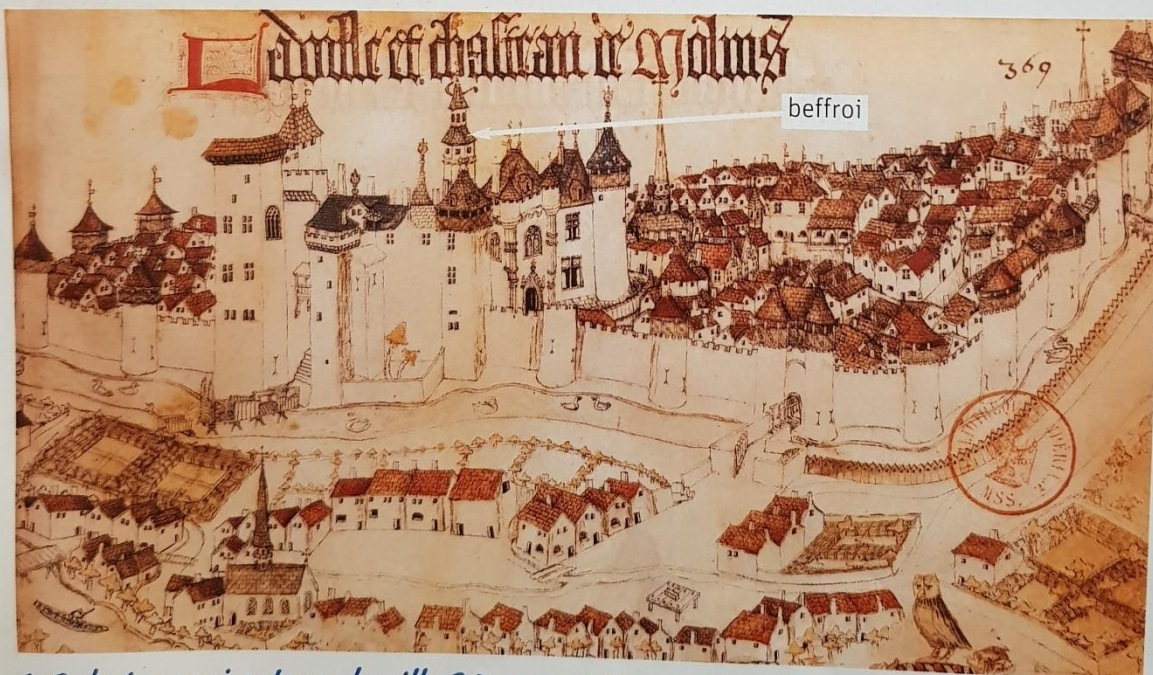 La ville et chasteau de Molins
369
beffroi
MSS.